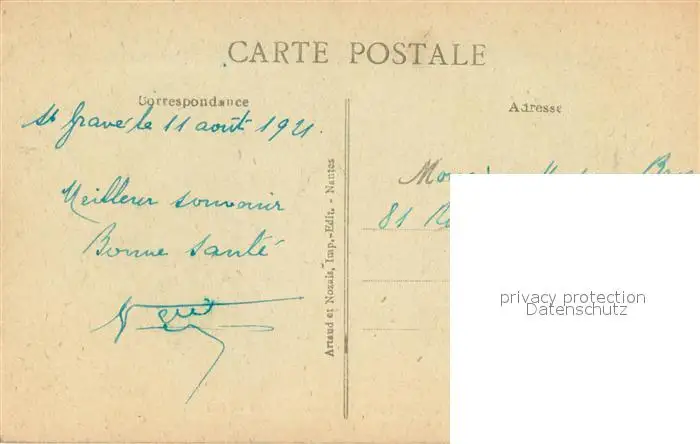 CARTE POSTALE
Correspondance
Adresse
St Gravé le 11 août 1921.
Meilleur souvenir
Bonne santé
Artaud et Nozais, Imp.-Edit. - Nantes
81
privacy protection
Datenschutz